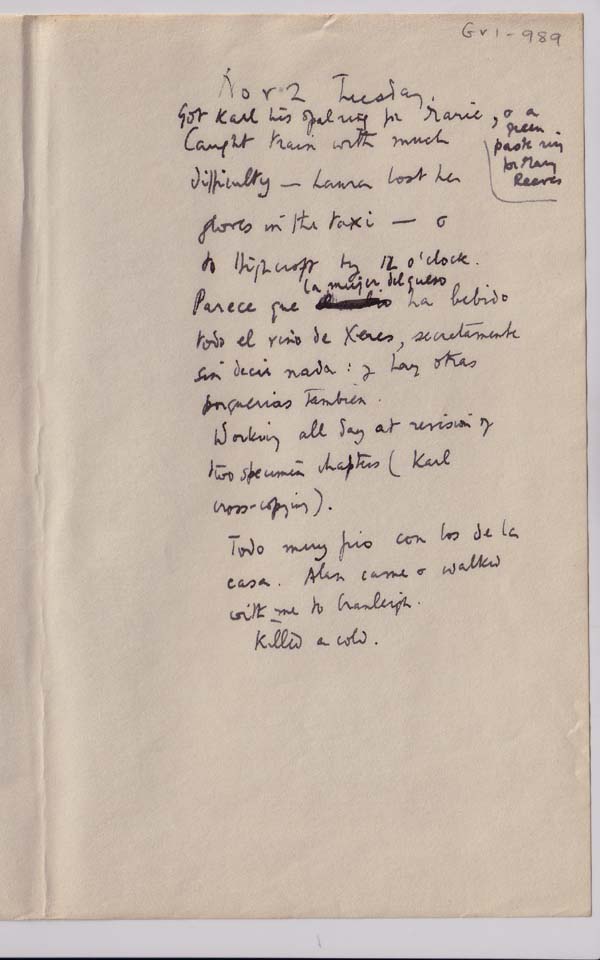 Gv1-989
Nov 2 Tuesday.
Got Karl his opal ring for Marie, & a
green
paste ring
for Mary
Reeves
Caught train with much
difficulty — Laura lost her
gloves in the taxi — &
to Highcroft by 12 o'clock.
la mujer del queso
Parece que ha bebido
todo el vino de Xeres, secretamente
sin decir nada: y hay otras
porquerias tambien.
Working all day at revision of
two specimen chapters (Karl
cross-copying).
Todo muy frio con los de la
casa. Alan came & walked
with me to Cranleigh.
Killed a cold.